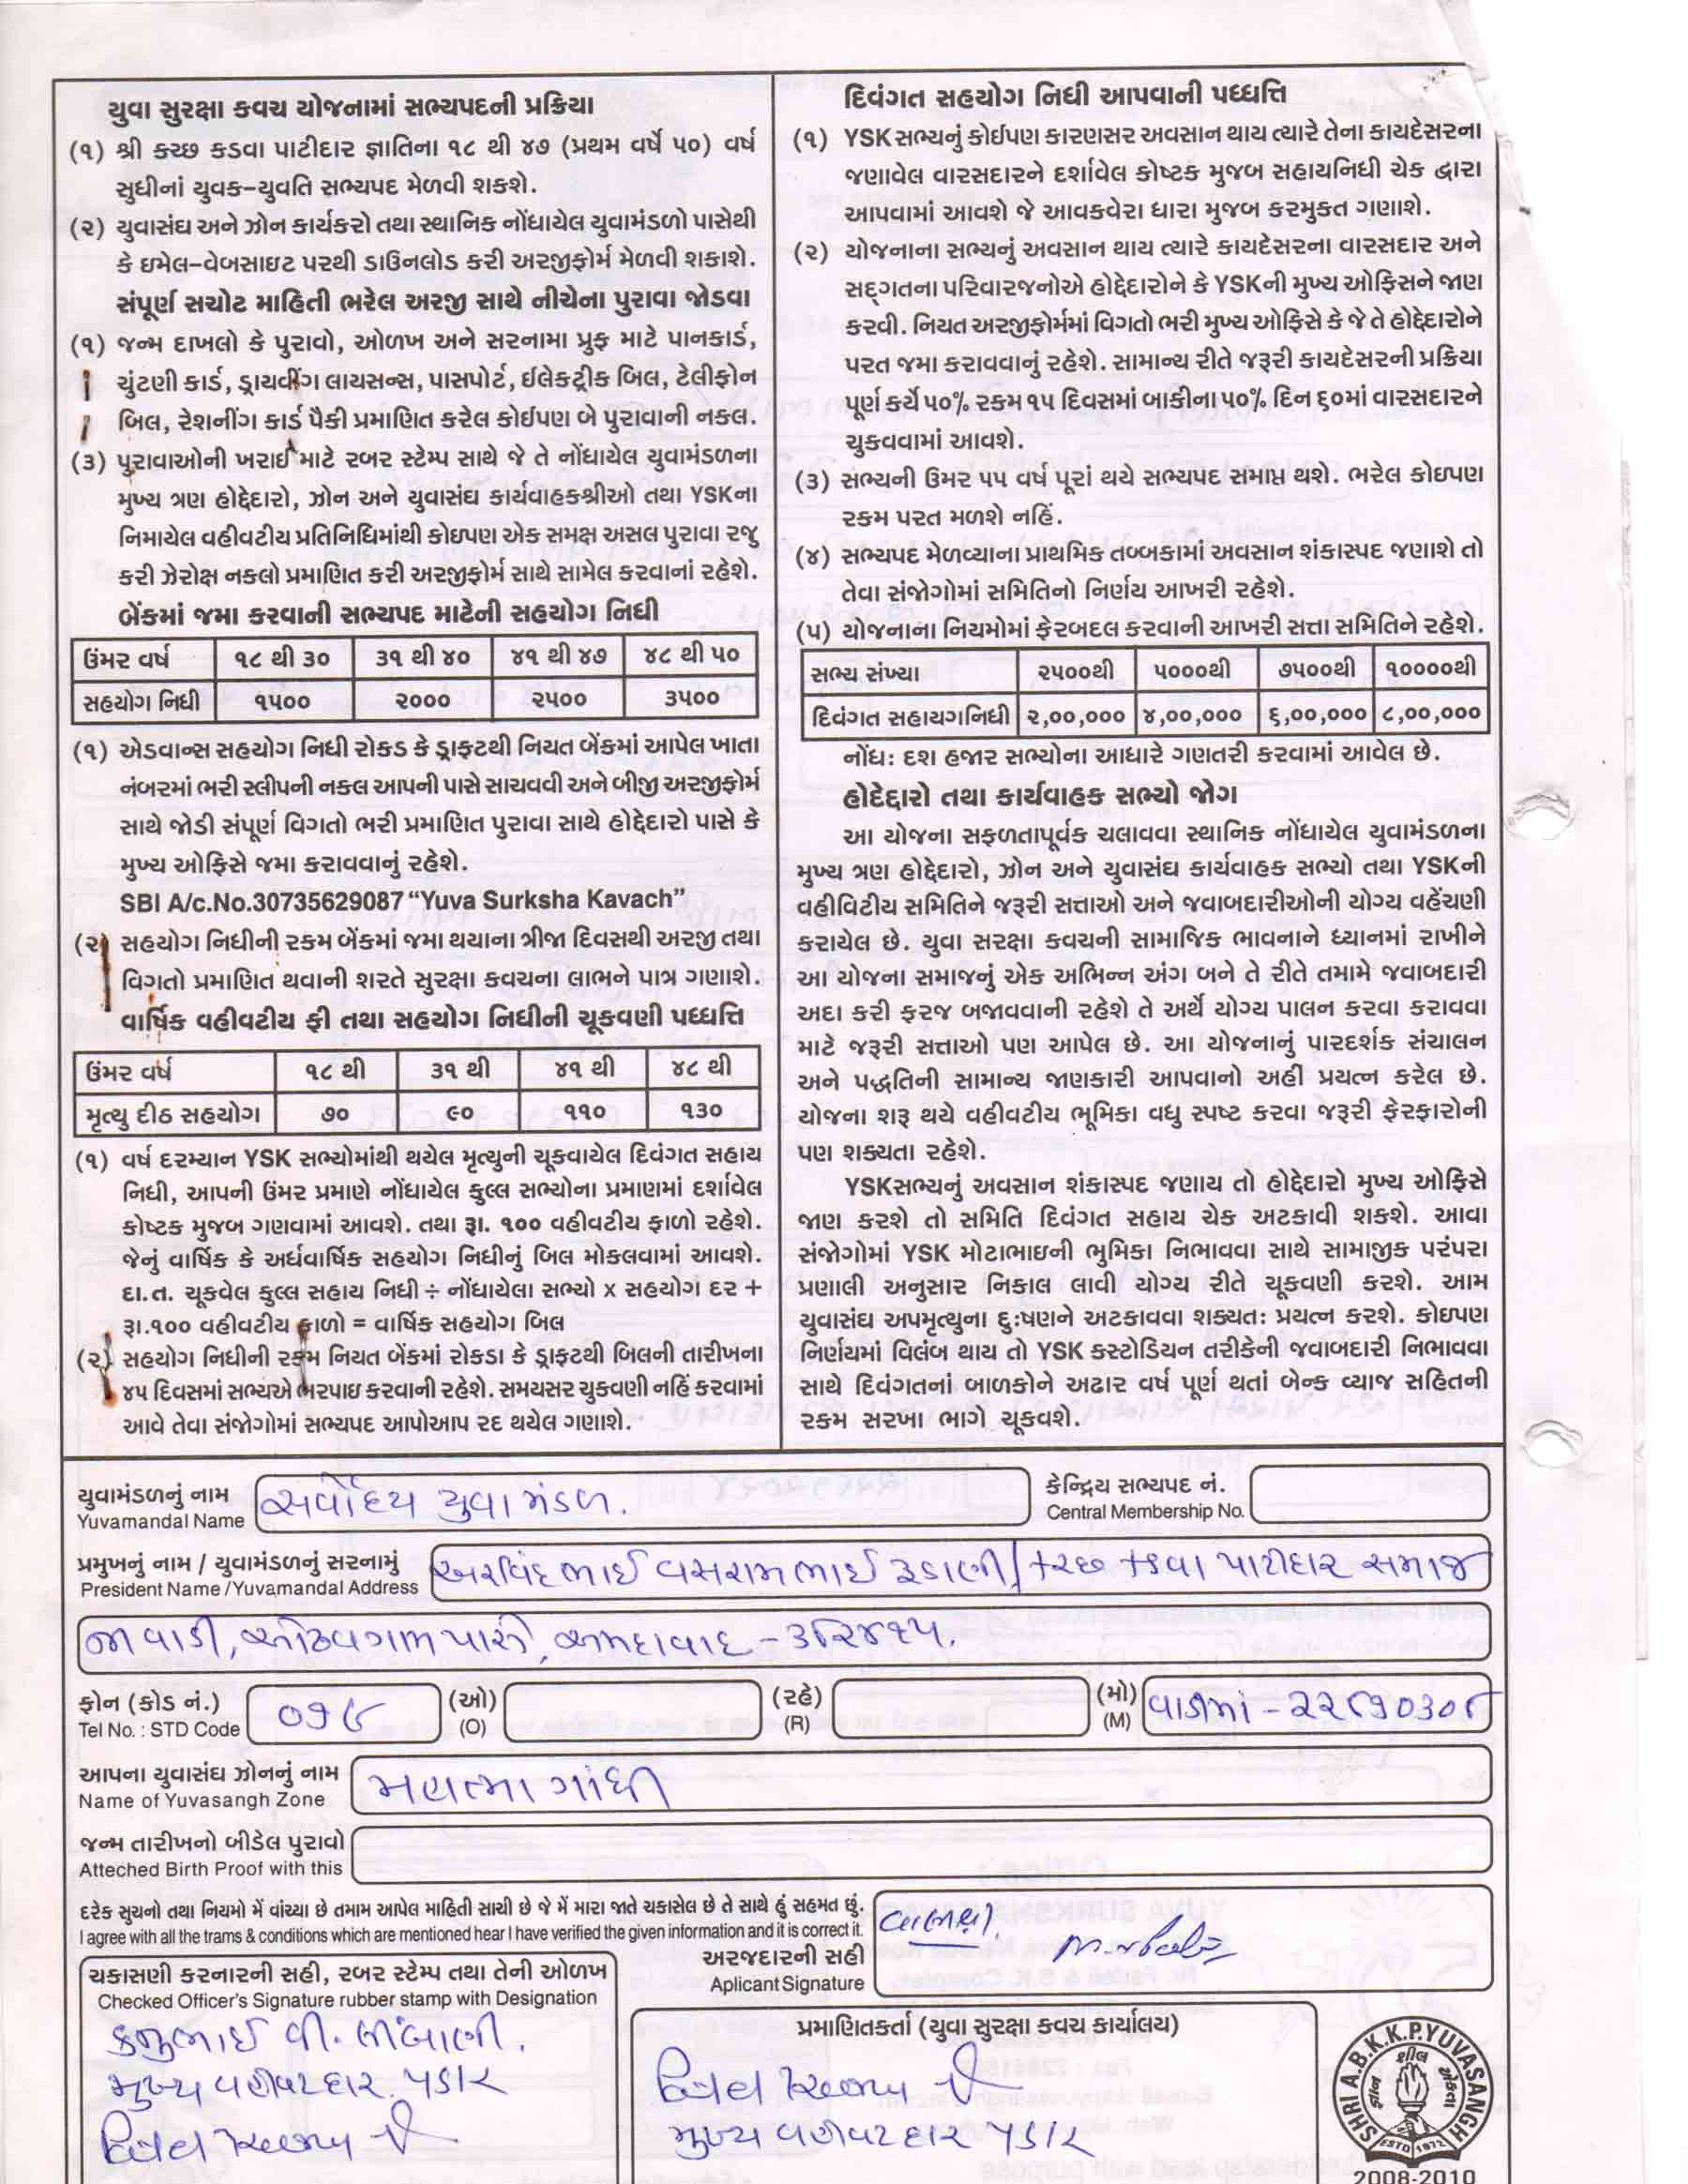 યુવા સુરક્ષા કવચ યોજનામાં સભ્યપદની પ્રક્રિયા
(૧) શ્રી કચ્છ કડવા પાટીદાર જ્ઞાતિના ૧૮ થી ૪૭ (પ્રથમ વર્ષે ૫૦) વર્ષ
સુધીનાં યુવક-યુવતિ સભ્યપદ મેળવી શકશે.
(૨) યુવાસંઘ અને ઝોન કાર્યકરો તથા સ્થાનિક નોંધાયેલ યુવામંડળો પાસેથી
કે ઇમેલ-વેબસાઇટ પરથી ડાઉનલોડ કરી અરજીફોર્મ મેળવી શકાશે.
સંપૂર્ણ સચોટ માહિતી ભરેલ અરજી સાથે નીચેના પુરાવા જોડવા
(૧) જન્મ દાખલો કે પુરાવો, ઓળખ અને સરનામા પ્રુફ માટે પાનકાર્ડ,
ચુંટણી કાર્ડ, ડ્રાયવીંગ લાયસન્સ, પાસપોર્ટ, ઈલેક્ટ્રીક બિલ, ટેલીફોન
બિલ, રેશનીંગ કાર્ડ પૈકી પ્રમાણિત કરેલ કોઈપણ બે પુરાવાની નકલ.
(૩) પુરાવાઓની ખરાઈ માટે રબર સ્ટેમ્પ સાથે જે તે નોંધાયેલ યુવામંડળના
મુખ્ય ત્રણ હોદ્દેદારો, ઝોન અને યુવાસંઘ કાર્યવાહકશ્રીઓ તથા YSKના
નિમાયેલ વહીવટીય પ્રતિનિધિમાંથી કોઇપણ એક સમક્ષ અસલ પુરાવા રજુ
કરી ઝેરોક્ષ નકલો પ્રમાણિત કરી અરજીફોર્મ સાથે સામેલ કરવાનાં રહેશે.
બેંકમાં જમા કરવાની સભ્યપદ માટેની સહયોગ નિધી
ઉંમર વર્ષ ૧૮ થી ૩૦ ૩૧ થી ૪૦ ૪૧ થી ૪૭ ૪૮ થી ૫૦
સહયોગ નિધી ૧૫૦૦ ૨૦૦૦ ૨૫૦૦ ૩૫૦૦
(૧) એડવાન્સ સહયોગ નિધી રોકડ કે ડ્રાફટથી નિયત બેંકમાં આપેલ ખાતા
નંબરમાં ભરી સ્લીપની નકલ આપની પાસે સાચવવી અને બીજી અરજીફોર્મ
સાથે જોડી સંપૂર્ણ વિગતો ભરી પ્રમાણિત પુરાવા સાથે હોદ્દેદારો પાસે કે
મુખ્ય ઓફિસે જમા કરાવવાનું રહેશે.
SBI A/c.No.30735629087 “Yuva Surksha Kavach”
(૨) સહયોગ નિધીની રકમ બેંકમાં જમા થયાના ત્રીજા દિવસથી અરજી તથા
વિગતો પ્રમાણિત થવાની શરતે સુરક્ષા કવચના લાભને પાત્ર ગણાશે.
વાર્ષિક વહીવટીય ફી તથા સહયોગ નિધીની ચૂકવણી પધ્ધત્તિ
ઉંમર વર્ષ ૧૮ થી ૩૧ થી ૪૧ થી ૪૮ થી
મૃત્યુ દીઠ સહયોગ ૭૦ ૯૦ ૧૧૦ ૧૩૦
(૧) વર્ષ દરમ્યાન YSK સભ્યોમાંથી થયેલ મૃત્યુની ચૂકવાયેલ દિવંગત સહાય
નિધી, આપની ઉંમર પ્રમાણે નોંધાયેલ કુલ્લ સભ્યોના પ્રમાણમાં દર્શાવેલ
કોષ્ટક મુજબ ગણવામાં આવશે. તથા રૂા. ૧૦૦ વહીવટીય ફાળો રહેશે.
જેનું વાર્ષિક કે અર્ધવાર્ષિક સહયોગ નિધીનું બિલ મોકલવામાં આવશે.
દા.ત. ચૂકવેલ કુલ્લ સહાય નિધી ÷ નોંધાયેલા સભ્યો x સહયોગ દર +
રૂા.૧૦૦ વહીવટીય ફાળો = વાર્ષિક સહયોગ બિલ
(૨) સહયોગ નિધીની રકમ નિયત બેંકમાં રોકડા કે ડ્રાફટથી બિલની તારીખના
૪૫ દિવસમાં સભ્યએ ભરપાઇ કરવાની રહેશે. સમયસર ચુકવણી નહિં કરવામાં
આવે તેવા સંજોગોમાં સભ્યપદ આપોઆપ રદ થયેલ ગણાશે.
દિવંગત સહયોગ નિધી આપવાની પધ્ધત્તિ
(૧) YSK સભ્યનું કોઈપણ કારણસર અવસાન થાય ત્યારે તેના કાયદેસરના
જણાવેલ વારસદારને દર્શાવેલ કોષ્ટક મુજબ સહાયનિધી ચેક દ્વારા
આપવામાં આવશે જે આવકવેરા ધારા મુજબ કરમુકત ગણાશે.
(૨) યોજનાના સભ્યનું અવસાન થાય ત્યારે કાયદેસરના વારસદાર અને
સદ્ગતના પરિવારજનોએ હોદ્દેદારોને કે YSKની મુખ્ય ઓફિસને જાણ
કરવી. નિયત અરજીફોર્મમાં વિગતો ભરી મુખ્ય ઓફિસે કે જે તે હોદ્દેદારોને
પરત જમા કરાવવાનું રહેશે. સામાન્ય રીતે જરૂરી કાયદેસરની પ્રક્રિયા
પૂર્ણ કર્યે ૫૦% રકમ ૧૫ દિવસમાં બાકીના ૫૦% દિન ૬૦માં વારસદારને
ચુકવવામાં આવશે.
(૩) સભ્યની ઉંમર ૫૫ વર્ષ પૂરાં થયે સભ્યપદ સમાપ્ત થશે. ભરેલ કોઇપણ
રકમ પરત મળશે નહિં.
(૪) સભ્યપદ મેળવ્યાના પ્રાથમિક તબ્બકામાં અવસાન શંકાસ્પદ જણાશે તો
તેવા સંજોગોમાં સમિતિનો નિર્ણય આખરી રહેશે.
(૫) યોજનાના નિયમોમાં ફેરબદલ કરવાની આખરી સત્તા સમિતિને રહેશે.
સભ્ય સંખ્યા ૨૫૦૦થી ૫૦૦૦થી ૭૫૦૦થી ૧૦૦૦૦થી
દિવંગત સહાયગનિધી ૨,૦૦,૦૦૦ ૪,૦૦,૦૦૦ ૬,૦૦,૦૦૦ ૮,૦૦,૦૦૦
નોંધ: દશ હજાર સભ્યોના આધારે ગણતરી કરવામાં આવેલ છે.
હોદેદ્દારો તથા કાર્યવાહક સભ્યો જોગ
આ યોજના સફળતાપૂર્વક ચલાવવા સ્થાનિક નોંધાયેલ યુવામંડળના
મુખ્ય ત્રણ હોદ્દેદારો, ઝોન અને યુવાસંઘ કાર્યવાહક સભ્યો તથા YSKની
વહીવિટીય સમિતિને જરૂરી સત્તાઓ અને જવાબદારીઓની યોગ્ય વહેંચણી
કરાયેલ છે. યુવા સરક્ષા કવચની સામાજિક ભાવનાને ધ્યાનમાં રાખીને
આ યોજના સમાજનું એક અભિન્ન અંગ બને તે રીતે તમામે જવાબદારી
અદા કરી ફરજ બજાવવાની રહેશે તે અર્થે યોગ્ય પાલન કરવા કરાવવા
માટે જરૂરી સત્તાઓ પણ આપેલ છે. આ યોજનાનું પારદર્શક સંચાલન
અને પદ્ધતિની સામાન્ય જાણકારી આપવાનો અહીં પ્રયત્ન કરેલ છે.
યોજના શરૂ થયે વહીવટીય ભૂમિકા વધુ સ્પષ્ટ કરવા જરૂરી ફેરફારોની
પણ શક્યતા રહેશે.
YSKસભ્યનું અવસાન શંકાસ્પદ જણાય તો હોદ્દેદારો મુખ્ય ઓફિસે
જાણ કરશે તો સમિતિ દિવંગત સહાય ચેક અટકાવી શકશે. આવા
સંજોગોમાં YSK મોટાભાઇની ભુમિકા નિભાવવા સાથે સામાજીક પરંપરા
પ્રણાલી અનુસાર નિકાલ લાવી યોગ્ય રીતે ચૂકવણી કરશે. આમ
યુવાસંઘ અપમૃત્યુના દુ:ષણને અટકાવવા શક્યત: પ્રયત્ન કરશે. કોઇપણ
નિર્ણયમાં વિલંબ થાય તો YSK કસ્ટોડિયન તરીકેની જવાબદારી નિભાવવા
સાથે દિવંગતનાં બાળકોને અઢાર વર્ષ પૂર્ણ થતાં બેન્ક વ્યાજ સહિતની
રકમ સરખા ભાગે ચૂકવશે.
યુવામંડળનું નામ સર્વોદય યુવા મંડળ. કેન્દ્રિય સભ્યપદ નં.
Yuvamandal Name Central Membership No.
પ્રમુખનું નામ / યુવામંડળનું સરનામું અરવિંદભાઈ વસરામભાઈ રૂડાણી/કચ્છ કડવા પાટીદાર સમાજ
President Name /Yuvamandal Address
વાડી,
ફોન (કોડ નં.) ૦૭૯ (ઓ) (રહે) (મો)
Tel No. : STD Code (O) (R) (M)
આપના યુવાસંઘ ઝોનનું નામ મહાત્મા ગાંધી
Name of Yuvasangh Zone
જન્મ તારીખનો બીડેલ પુરાવો
Atteched Birth Proof with this
દરેક સુચનો તથા નિયમો મેં વાંચ્યા છે તમામ આપેલ માહિતી સાચી છે જે મેં મારા જાતે ચકાસેલ છે તે સાથે હું સહમત છું.
I agree with all the trams & conditions which are mentioned hear I have verified the given information and it is correct it.
અરજદારની સહી
Aplicant Signature
ચકાસણી કરનારની સહી, રબર સ્ટેમ્પ તથા તેની ઓળખ
Checked Officer's Signature rubber stamp with Designation
કનુભાઈ વી. લીંબાણી.
મુખ્ય વહીવટદાર.
પ્રમાણિતકર્તા (યુવા સુરક્ષા કવચ કાર્યાલય)
મુખ્ય વહીવટદાર
SHRI A.B.K.K.P.YUVASANGH
ESTD 1972
2008-2010